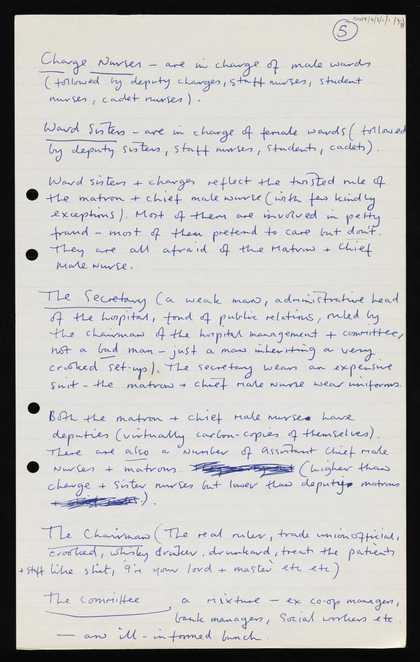 5
Charge Nurses - are in charge of male wards
(followed by deputy charges, staff nurses, student
nurses, cadet nurses).
Ward Sisters - are in charge of female wards (followed
by deputy sisters, staff nurses, students, cadets).
Ward sisters + charges reflect the twisted rule of
the matron + chief male nurse (with few kindly
exceptions). Most of them are involved in petty
fraud - most of them pretend to care but don't.
They are all afraid of the Matron + Chief
Male Nurse.
The Secretary (a weak man, administrative head
of the hospital, fond of public relations, ruled by
the chairman of the hospital management + committee,
not a bad man - just a man inheriting a very
crooked set-up). The secretary wears an expensive
suit - the matron + chief Male Nurse wear uniforms.
Both the matron + chief Male Nurse have
deputies (virtually carbon-copies of themselves).
There are also a number of assistant chief male
nurses + matrons. (higher than
charge + sister nurses but lower than deputy matrons
).
The Chairman (The real ruler, trade union official,
crooked, whisky drinker, drunkard, treat the patients
+ staff like shit, I'm your lord + master etc etc)
The Committee a mixture - ex co-op managers,
bank managers, social workers etc
- an ill-informed bunch.